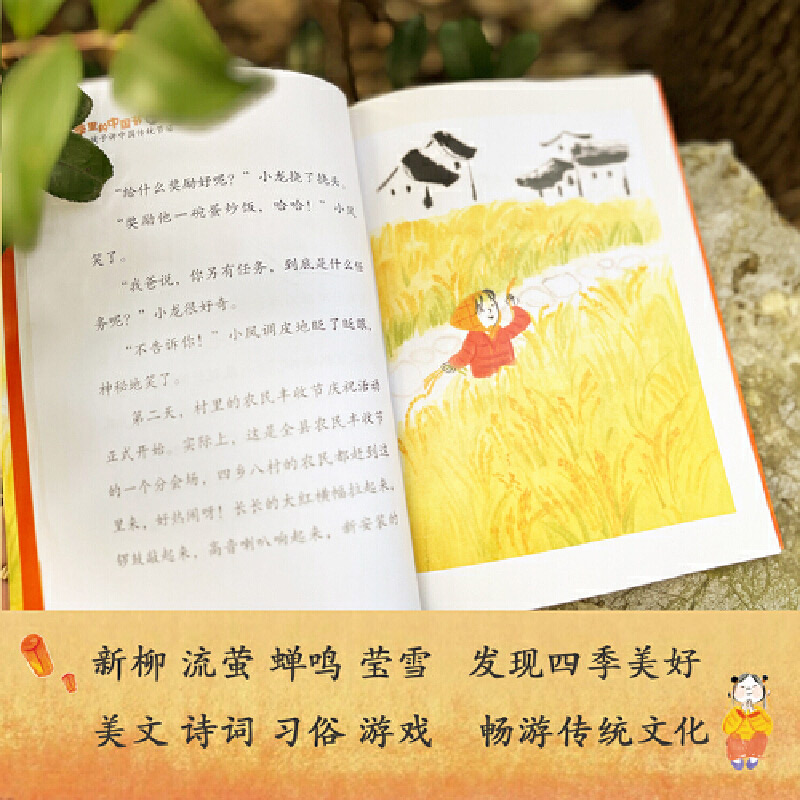 里的中国节
孩子讲中国传统节
“给什么奖励好呢？”小龙挠了挠头。
“奖励他一碗蛋炒饭，哈哈！”小凤
笑了。
“我爸说，你另有任务，到底是什么任
务呢？”小龙很好奇。
“不告诉你！”小凤调皮地眨了眨眼，
神秘地笑了。
第二天，村里的农民丰收节庆祝活动
正式开始。实际上，这是全县农民丰收节
的一个分会场，四乡八村的农民都赶到这
里来，好热闹呀！长长的大红横幅拉起来，
锣鼓敲起来，高音喇叭响起来，新安装的
新柳 流萤 蝉鸣 莹雪 发现四季美好
美文 诗词 习俗 游戏 畅游传统文化